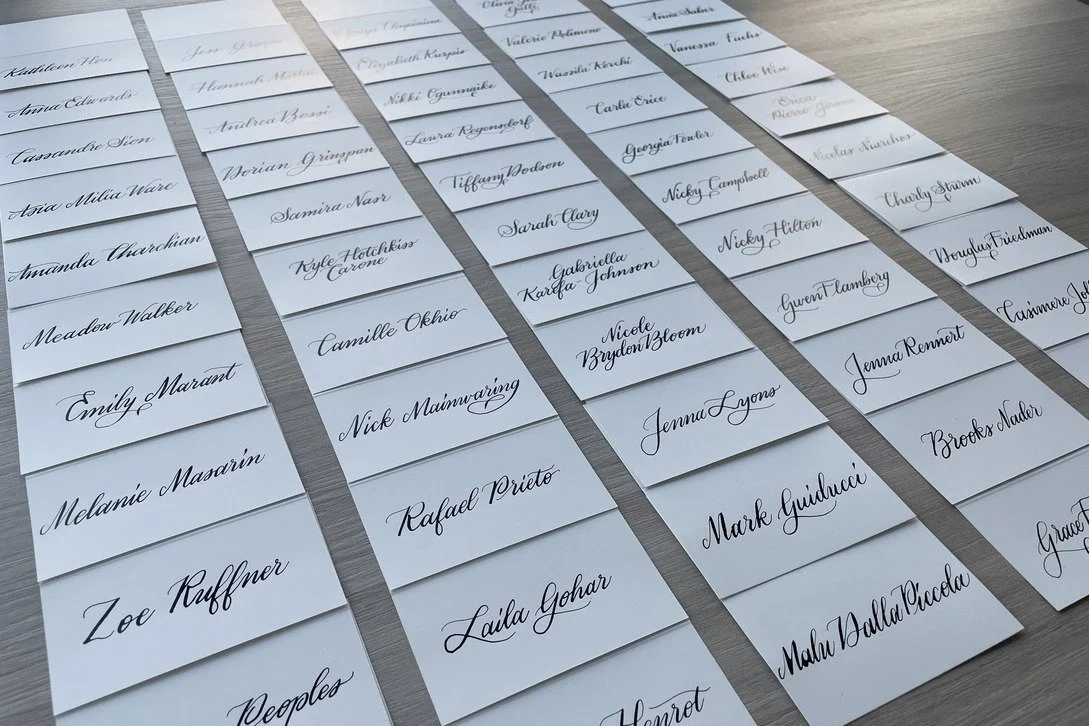 Kathleen Hou
Anna Edwards
Cassandre Sion
Asia Milia Ware
Amanda Charchian
Meadow Walker
Emily Marant
Melanie Masarin
Zoe Ruffner
Peoples
Jess
Hannah
Andrea Bossi
Dorian Grinspan
Samira Nasr
Kyle Hotchkiss
Carone
Camille Okhio
Nick Mainwaring
Rafael Prieto
Laila Gohar
Henrot
Elizabeth Kurpis
Nikki Ogunnaike
Laura Regensdorf
Tiffany Dodson
Sarah Clary
Gabriella
Karefa-Johnson
Nicole
Brydon Bloom
Jenna Lyons
Mark Guiducci
Malu Dalla Piccola
Olivia
Valerie Polimeno
Wassila Kerchi
Carla Erice
Georgia Fowler
Nicky Campbell
Nicky Hilton
Gwen Flamberg
Jenna Rennert
Brooks Nader
Grace
Anna Suber
Vanessa Fuchs
Chloe Wise
Erica
Pierre Jerome
Nicolas Niarchos
Charly Sturm
Douglas Friedman
Casimere